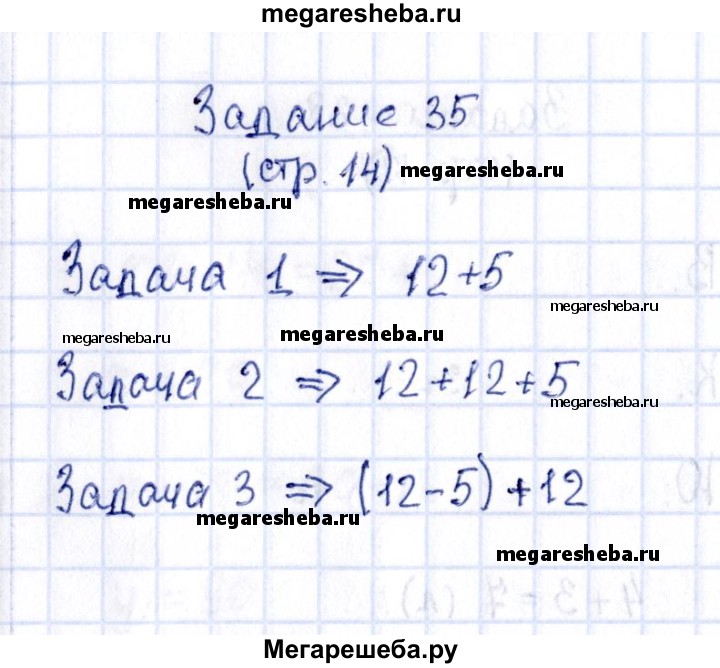 megaresheba.ru
Задание 35
(стр. 14) megaresheba.ru
megaresheba.ru
Задача 1 => 12+5
megaresheba.ru
megaresheba.ru megaresheba.ru
Задача 2 => 12+12+5
megaresheba.ru
Задача 3 => (12-5)+12
megaresheba.ru
megaresheba.ru
4+3=7 (д)
Мегарешеба.ру